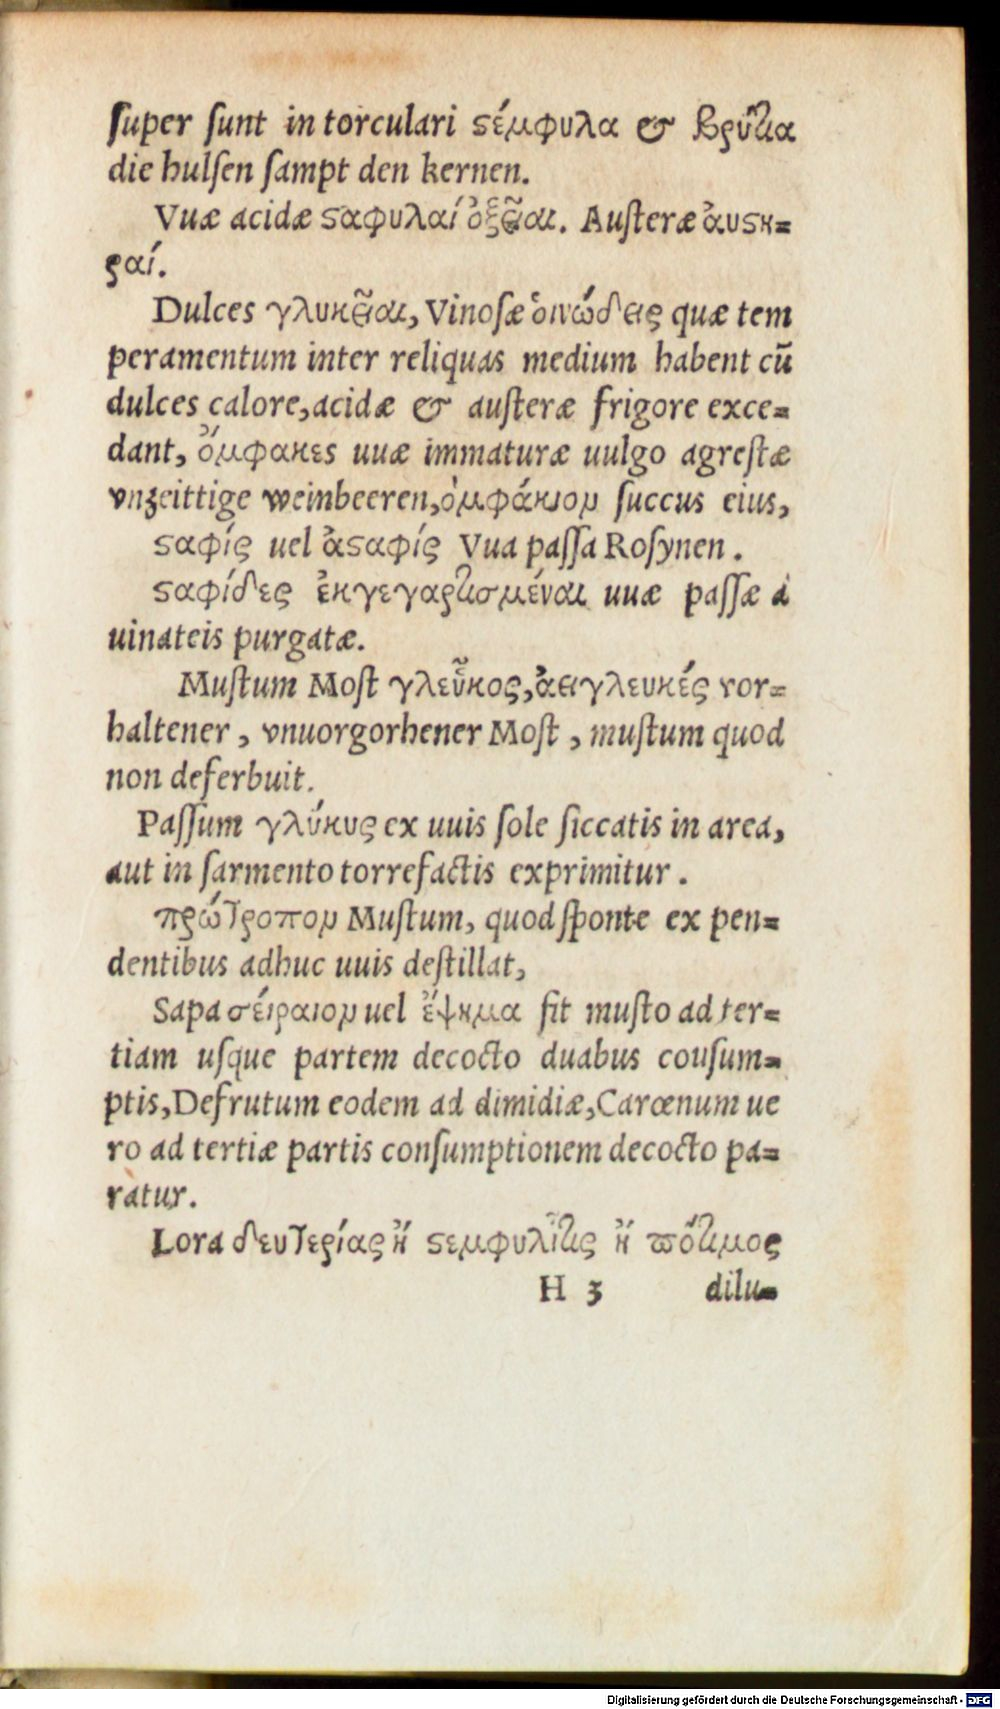 ſuper ſunt in torculari ϛέμφυλα & βρῦτια
die hulſen ſampt den kernen.
Vuæ acidæ ϛαφυλαί ὀξεῖαι. Auſteræ ἀυϛη-
ραί.
Dulces γλυκεῖαι, Vinoſæ ὀινώδεις quæ tem
peramentum inter reliquas medium habent cū
dulces calore, acidæ & auſteræ frigore exce-
dant, ὄμφακες uuæ immaturæ uulgo agreſtæ
vnzeittige weinbeeren, ὀμφάκιον ſuccus eius,
ϛαφίς uel ἀϛαφίς Vua paſſa Roſynen.
ϛαφίδες ἐκγεγαρτισμέναι uuæ paſſæ à
uinateis purgatæ.
Muſtum Moſt γλεῦκος, ἀειγλευκές vor-
haltener, vnuorgorhener Moſt, muſtum quod
non deferbuit.
Paſſum γλύκυς ex uuis ſole ſiccatis in area,
aut in ſarmento torrefactis exprimitur.
πρώτροπον Muſtum, quod ſponte ex pen-
dentibus adhuc uuis deſtillat,
Sapa σείραιον uel ἕψημα fit muſto ad ter-
tiam uſque partem decocto duabus couſum-
ptis, Defrutum eodem ad dimidiæ, Carœnum ue
ro ad tertiæ partis conſumptionem decocto pa-
ratur.
Lora δευτερίας ἢ ϛεμφυλίτις ἢ πότιμος
H 3 dilu-
Digitalisierung gefördert durch die Deutsche Forschungsgemeinschaft - DFG